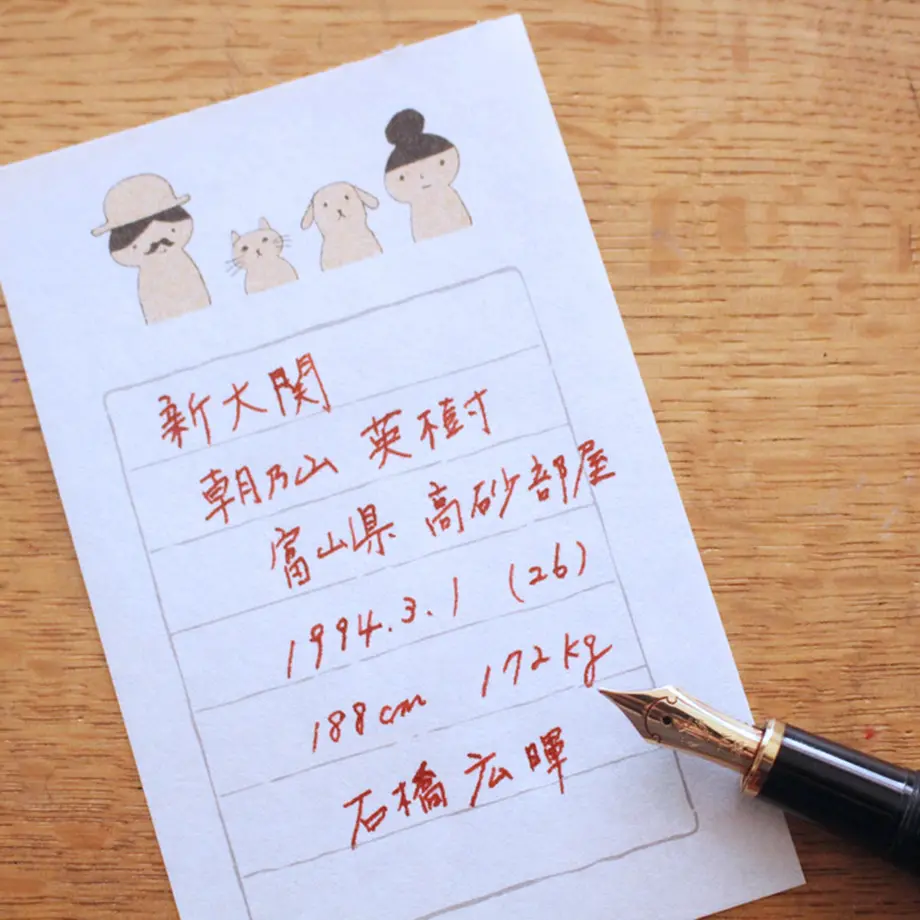 新大関
朝乃山 英樹
富山県 高砂部屋
1994.3.1 (26)
188cm 172kg
石橋 広暉